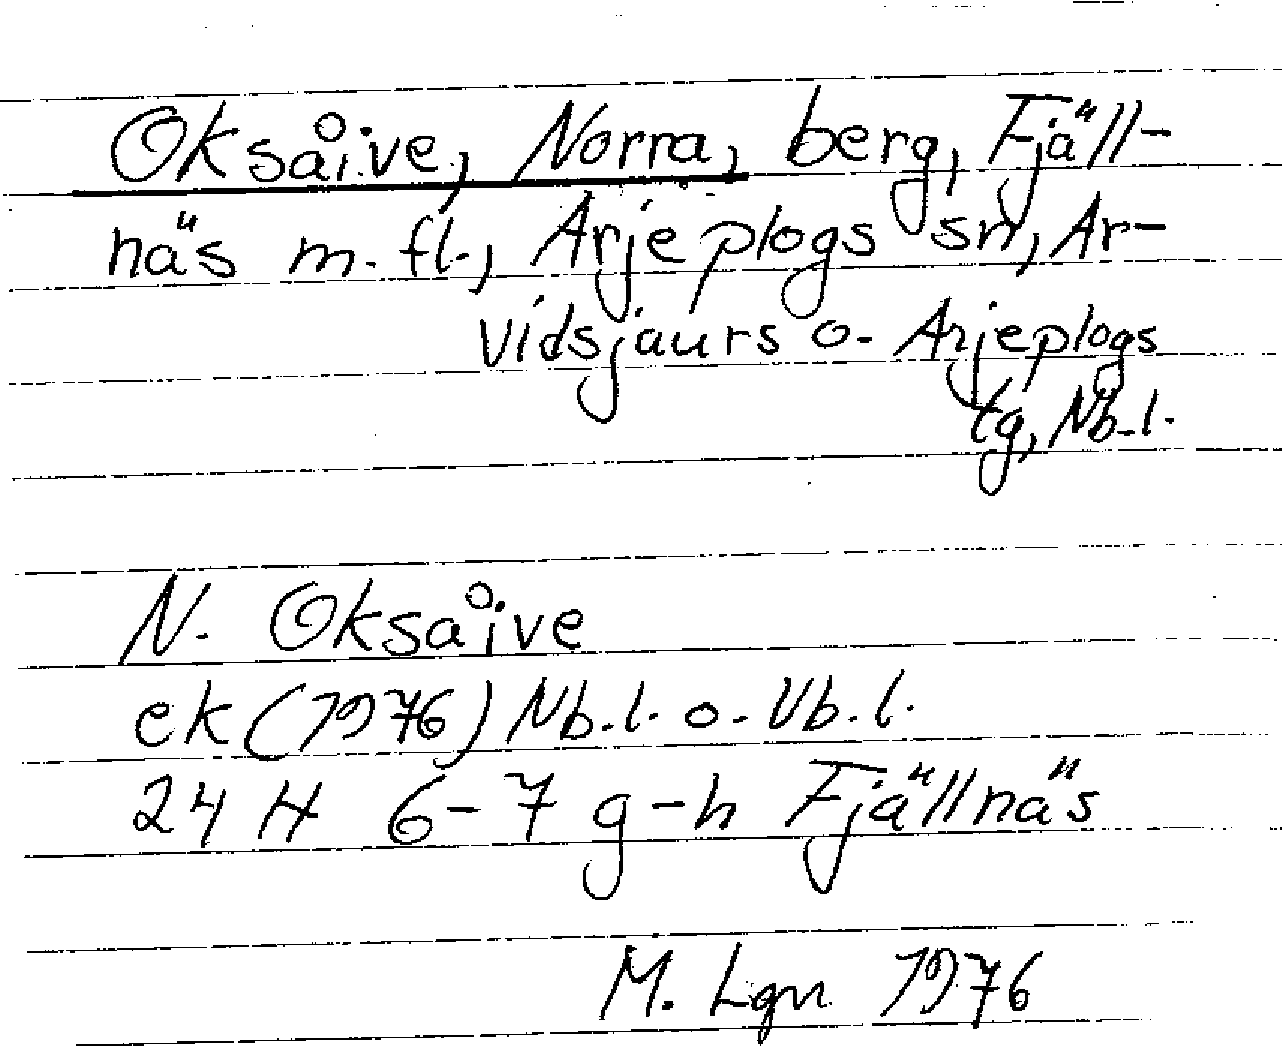 Oksåive, Norra, berg, Fjäll-
näs m. fl., Arjeplogs sn, Ar-
vidsjaurs o. Arjeplogs
tg, Nb.l.
N. Oksåive
ek (1976) Nb.l. o. Vb.l.
24 H 6-7 g-h Fjällnäs
M. Lgn 1976